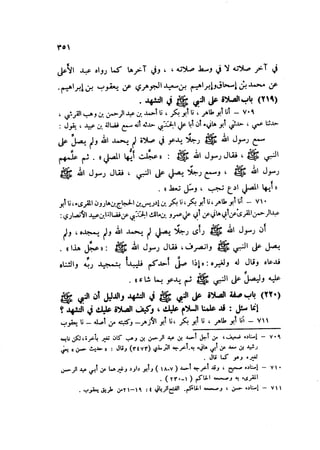 ٣٥١
في آخر صلاته لا في وسط صلاته ، ، وفي آخرها كما رواه عبد الأعلى
عن محمد بن إسحاق وإبراهيم بن سعيد الجوهري عن يعقوب بن إبراهيم .
(٢١٩) باب الصلاة على النبي ﷺ في التشهد .
٧٠٩ - نا أبو طاهر ، نا أبو بكر ، نا أحمد بن عبد الرحمن بن وهب القرشي ،
حدثنا عمي ، حدثني أبو هانىء أن أبا علي الجنبي حدثه أنه سمع فضالة بن عبيد ، يقول :
سمع رسول الله ﷺ رجلاً يدعو في صلاة لم يحمد الله ولم يصل على
النبي ﷺ ، فقال رسول الله ﷺ : «عجلت أيها المصلي» . ثم علمهم
رسول الله ﷺ ، وسمع رجلاً يصلي على النبي ، فقال رسول الله ﷺ
«أيها المصلي ادع تجب ، وسل تعط» .
٧١٠ - نا أبو طاهر ، نا أبو بكر ، نا بكر بن إدريس بن الحجاج بن هارون المقرىء ، نا أبو
عبد الرحمن المقرىء عن أبي هانىء عن أبي علي عمرو بن مالك الجنبي عن فضالة بن عبيد الأنصاري :
أن رسول الله ﷺ رأى رجلاً يصلي لم يحمد الله ولم يمجده ، ولم
يصل على النبي ﷺ وانصرف ، فقال رسول الله ﷺ : «عجل هذا» .
فدعاه وقال له ولغيره : «إذا صلى أحدكم فليبدأ بتمجيد ربه والثناء
عليه وليصل على النبي ﷺ ثم يدعو بما شاء» .
(٢٢٠) باب صفة الصلاة على النبي ﷺ في التشهد والدليل أن النبي ﷺ
إنما سئل : قد علمنا السلام عليك ، وكيف الصلاة عليك في التشهد ؟
٧١١ - نا أبو طاهر ، نا أبو بكر ، نا أبو الأزهر - وكتبته من أصله - نا يعقوب
٧٠٩ - إسناده ضعيف ، من أجل أحمد بن عبد الرحمن بن وهب كان تغير بأخرة ، لكن تابعه
رشيد بن سعد عن أبي هانىء به . أخرجه الترمذي (٣٤٧٣) وقال : «حديث حسن» يعني
لغيره وهو كما قال .
٧١٠ - إسناده صحيح ، وقد أخرجه أحمد (١٨/٧) وأبو داود وغيرهما عن أبي عبد الرحمن
المقرىء به وصححه الحاكم (٢٣٠/١) .
٧١١ - إسناده حسن ، وصححه الحاكم. الفتح الرباني ٤ : ١٩-٢١ من طريق يعقوب .